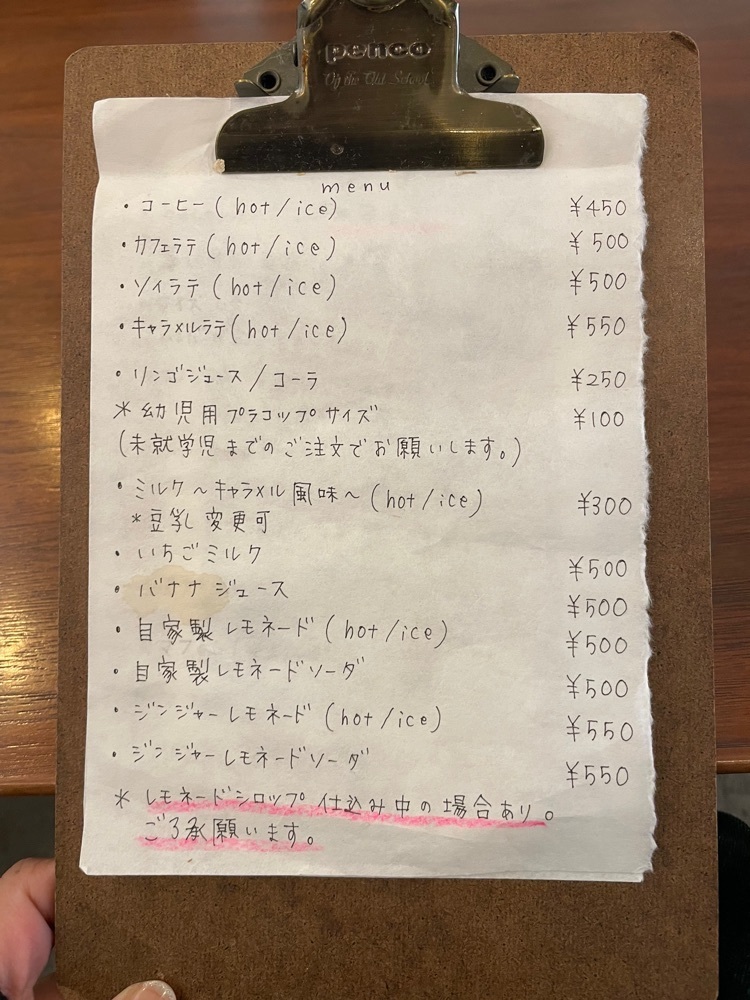 penco
Of the Old School
menu
・コーヒー(hot/ice) ¥450
・カフェラテ(hot/ice) ¥500
・ソイラテ(hot/ice) ¥500
・キャラメルラテ(hot/ice) ¥550
・リンゴジュース/コーラ ¥250
*幼児用プラコップサイズ ¥100
(未就学児までのご注文でお願いします。)
・ミルク〜キャラメル風味〜(hot/ice) ¥300
*豆乳変更可
・いちごミルク ¥500
・バナナジュース ¥500
・自家製レモネード(hot/ice) ¥500
・自家製レモネードソーダ ¥500
・ジンジャーレモネード(hot/ice) ¥550
・ジンジャーレモネードソーダ ¥550
*レモネードシロップ仕込み中の場合あり。
ご了承願います。